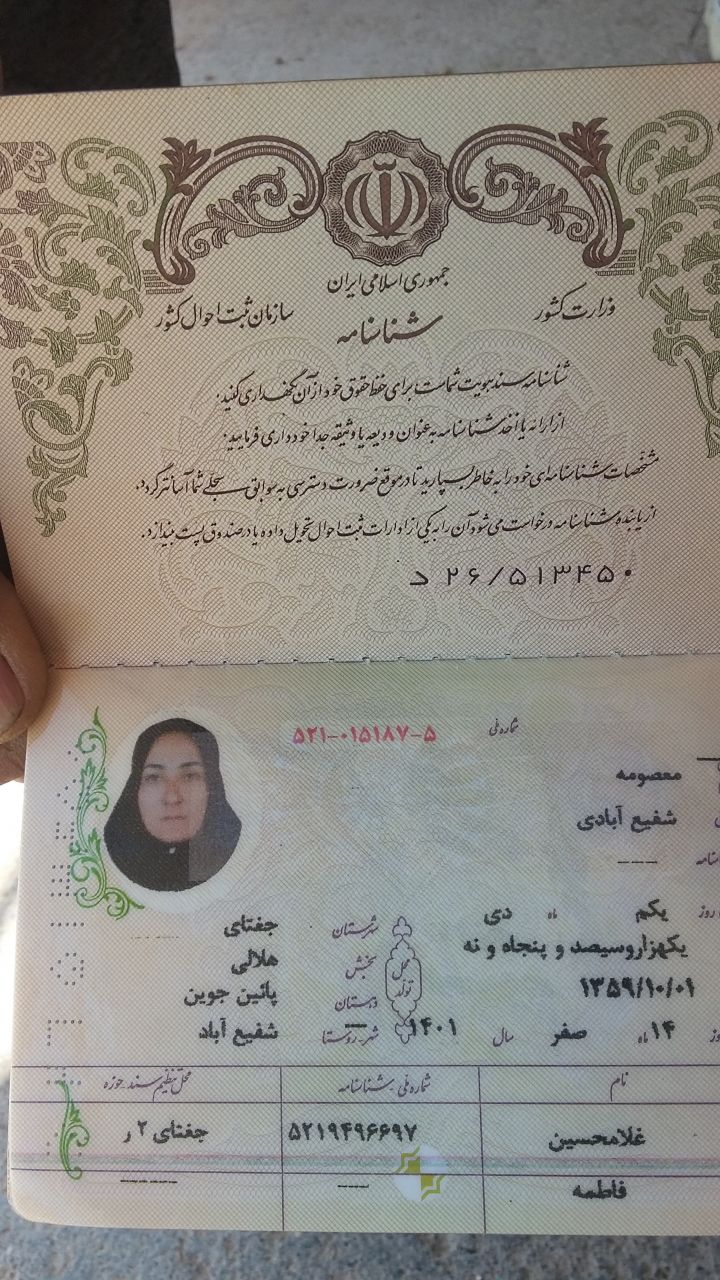 جمهوری اسلامی ایران
وزارت کشور
سازمان ثبت احوال کشور
شناسنامه
شناسنامه سند هویت شماست برای حفظ حقوق خود از آن نگهداری کنید.
از ارائه یا اخذ شناسنامه به عنوان ودیعه یا وثیقه جدا خودداری فرمایید.
مشخصات شناسنامه‌ای خود را به خاطر بسپارید تا در موقع ضرورت دسترسی به سوابق سجلی شما آسانتر گردد.
از یابنده شناسنامه درخواست می‌شود آن را به یکی از ادارات ثبت احوال تحویل داده یا در صندوق پست بیندازد.
د ۲۶/۵۱۳۴۵۰
شماره ملی ۵۲۱-۰۱۵۱۸۷-۵
معصومه
شفیع آبادی
---
روز یکم ماه دی
یکهزاروسیصد و پنجاه و نه
۱۳۵۹/۱۰/۰۱
۱۴ ماه صفر سال ۱۴۰۱
محل تولد
شهرستان جغتای
بخش هلالی
دهستان پائین جوین
شهر-روستا شفیع آباد
نام شماره ملی-شناسنامه محل تنظیم سند-حوزه
غلامحسین ۵۲۱۹۴۹۶۶۹۷ جغتای ۲ ر
فاطمه ---- ------